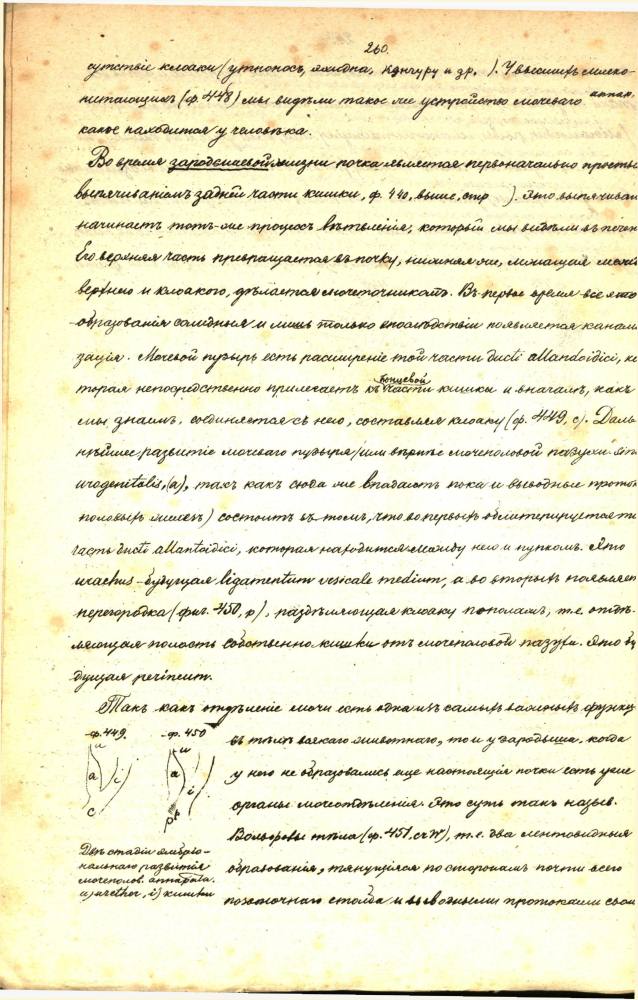 260.
сутствіе клоаки (утконосъ, эхидна, кэнгуру и др. ). У высшихъ млеко-
питающихъ (ф. 448) мы видѣли такое же устройство мочеваго аппар.
какое находится у человѣка.
Во время зародышевой жизни почка является первоначально просты
выпячиваніемъ задней части кишки, ф. 440, выше, стр ). Это выпячиван
начинаетъ тотъ-же процессъ вѣтвленія, который мы видѣли въ печен
Его верхняя часть превращается въ почку, нижняя же, лежащая между
верхнею и клоакою, дѣлается мочеточникомъ. Въ первое время все это
образованія солидныя и лишь только впослѣдствіи появляется канали
зація. Мочевой пузырь есть расширеніе той части ducti allandoidici, ко
торая непосредственно прилегаетъ къ концевой части кишки и вначалѣ, какъ
мы знаемъ, соединяется съ нею, составляя клоаку (ф. 449, с). Даль
нѣйшее развитіе мочеваго пузыря (или вѣрнѣе мочеполовой пазухи
urogenitalis, (а), такъ какъ сюда же впадаютъ пока и выводные проток
половыхъ железъ) состоитъ въ томъ, что во первыхъ облитерируется та
часть ducti allantoidici, которая находится между нею и пупкомъ. Это
urachus - будущая ligamentum vesicale medium, а во вторыхъ появляет
перегородка (фиг. 450, р), раздѣляющая клоаку пополамъ, т.е. отдѣ-
ляющая полость собственно кишки отъ мочеполовой пазухи. Это бу
дущая perineum.
Такъ какъ отдѣленіе мочи есть одна изъ самыхъ важныхъ функц
въ тѣлѣ всякаго животнаго, то и у зародыша, когда
у него не образовались еще настоящія почки есть уже
органы мочеотдѣленія. Это суть такъ назыв.
Вольфовы тѣла (ф. 451, W), т.е. два лентовидныя
образованія, тянущіяся по сторонамъ почти всего
позвоночнаго столба и выводными протоками свои
ф. 449. ф. 450
u u
a i a i
c p
Двѣ стадіи эмбріо-
нальнаго развитія
мочеполов. аппарата.
u) urether, i) кишки